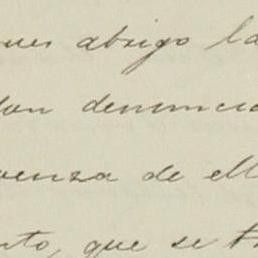 pues abrigo la
dan denuncia
venza de ell
nto, que se tr